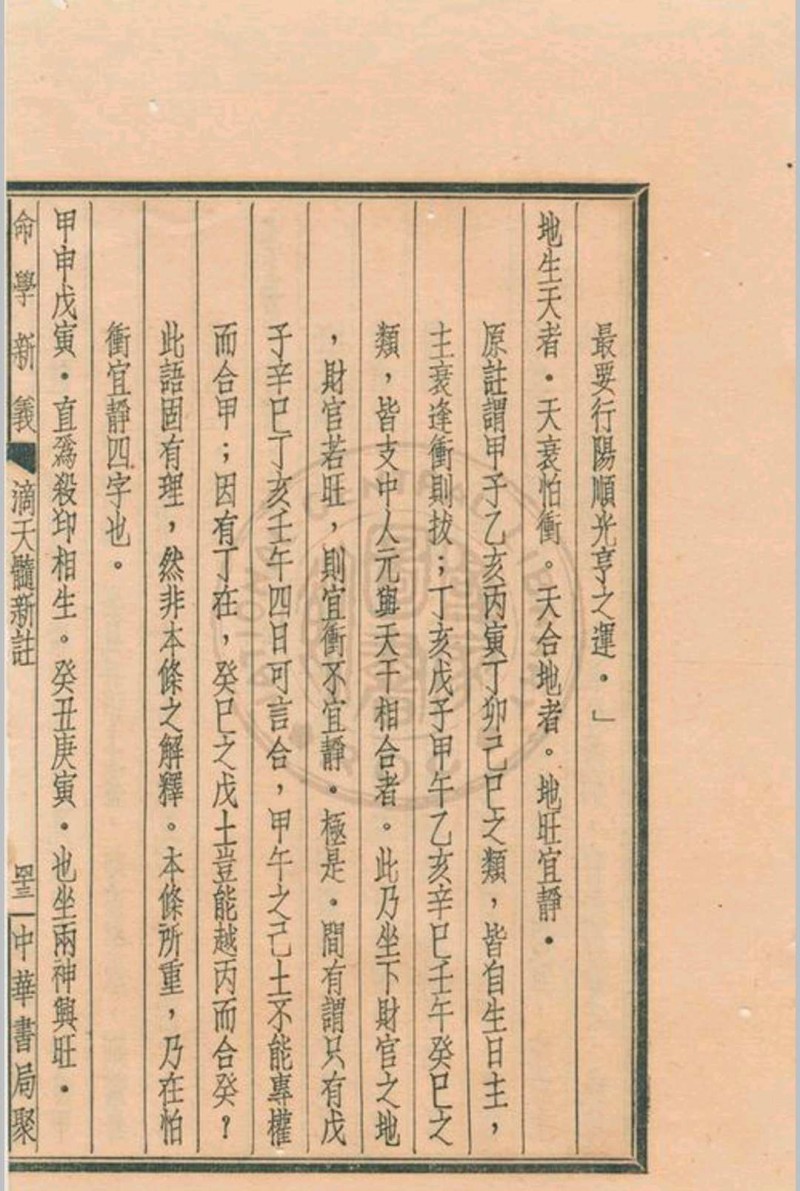 最要行陽順光亨之運。」
地生天者。天衰怕衝。天合地者。地旺宜靜。
原註謂甲子乙亥丙寅丁卯己巳之類，皆自生日主，
主衰逢衝則拔；丁亥戊子甲午乙亥辛巳壬午癸巳之
類，皆支中人元與天干相合者。此乃坐下財官之地
，財官若旺，則宜衝不宜靜。極是。間有謂只有戊
子辛巳丁亥壬午四日可言合，甲午之己土不能專權
而合甲；因有丁在，癸巳之戊土豈能越丙而合癸？
此語固有理，然非本條之解釋。本條所重，乃在怕
衝宜靜四字也。
甲申戊寅。直爲殺印相生。癸丑庚寅。也坐兩神興旺。
命學新義 滴天髓新註 四三 中華書局聚